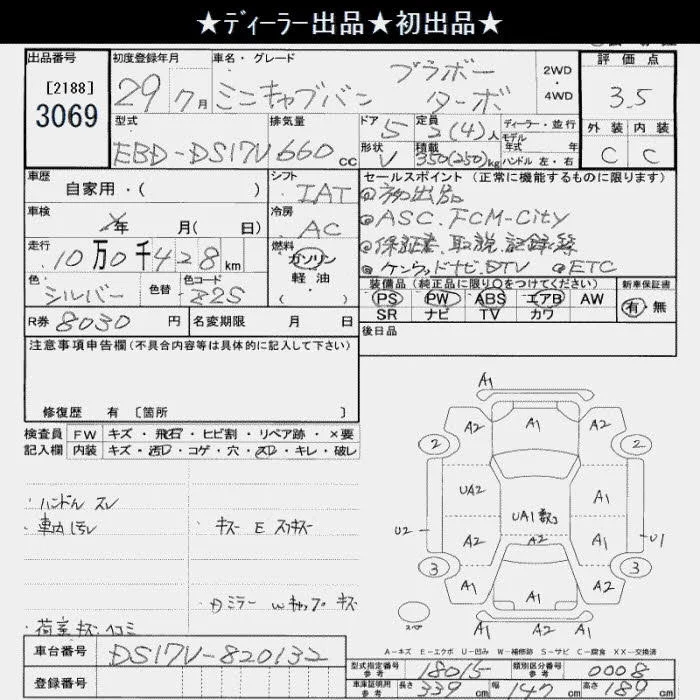 ★ディーラー出品★初出品★
出品番号
[2188]
3069
初度登録年月
29 7月
車名・グレード
ミニキャブバン ブラボー ターボ
2WD
4WD
評価点
3.5
外装 内装
C C
型式
EBD-DS17V
排気量
660 cc
ドア 5
定員 2(4)人
形状 V
積載 350(250)kg
ディーラー・並行
モデル年式 年
ハンドル 左・右
車歴
自家用・( )
シフト
IAT
セールスポイント (正常に機能するものに限ります)
◎初出品
◎ASC.FCM-City
◎保証書.取説.記録簿
◎ケンウッドナビ.DTV ◎ETC
車検
年 月( 日)
冷房
AC
走行
10万0千428km
燃料
ガソリン
軽油
( )
色
シルバー
色替
色コード
82S
装備品 (純正品に限り○をつけてください)
PS PW ABS エアB AW
SR ナビ TV カワ
新車保証書
有・無
R券 8030円
名変期限 月 日
後日品
注意事項申告欄(不具合内容等は具体的に記入して下さい)
修復歴 有 [箇所 ]
検査員 FW キズ・飛石・ヒビ割・リペア跡・×要
記入欄 内装 キズ・汚れ・コゲ・穴・スレ・キレ・破レ
・ハンドル スレ
・車内汚レ
・キズ E スリキズ
・Dミラー Wキャップ キズ
・荷室キズ ヘコミ
A1
A2 A1 A2
2 2
UA2 A1
U2 UA1数コ U1
A2 A2 A1
3 3
A2 A1 A1
スペア
A1
A2 A1 A2
A-キズ E-エクボ U-凹み W-補修跡 S-サビ C-腐食 XX-交換済
車台番号 DS17V-820132
登録番号
型式指定番号 参考 18015
類別区分番号 参考 0008
車庫証明用 参考 長さ 339cm 幅 147cm 高さ 189cm